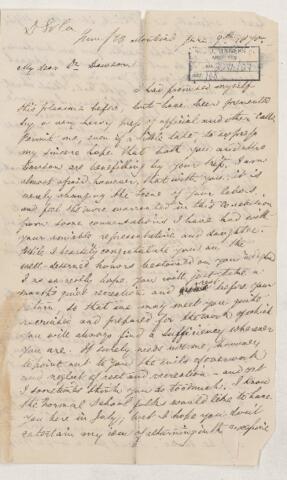 D Sola
Montreal June 9th
My dear Dr Dawson
I had promised myself
this pleasure before, but have been prevented
by a very heavy press of official and other calls.
Permit me, even if a little late to express
my sincere hope that both you and Mrs
Dawson are benefiting by your trip. I am
almost afraid however, that with you it is
merely changing the locus of your labor
and feel the more warranted in this
from some conversations I have had with
your amiable representative and daughter.
While I heartily congratulate you on the
well deserved honors bestowed on you
I so earnestly hope you will just take a
months quiet recreation and rest before your
return so that we may meet you quite
and prepared for the work of which
you will always find a sufficiency wherever
you are. It surely needs not me, however,
to point out to you the evils of overwork
and neglect of rest and recreation — and yet
I sometimes think you do too much. I know
the Normal School folks would like to have
you here in July, but I hope you don't
entertain any idea of returning